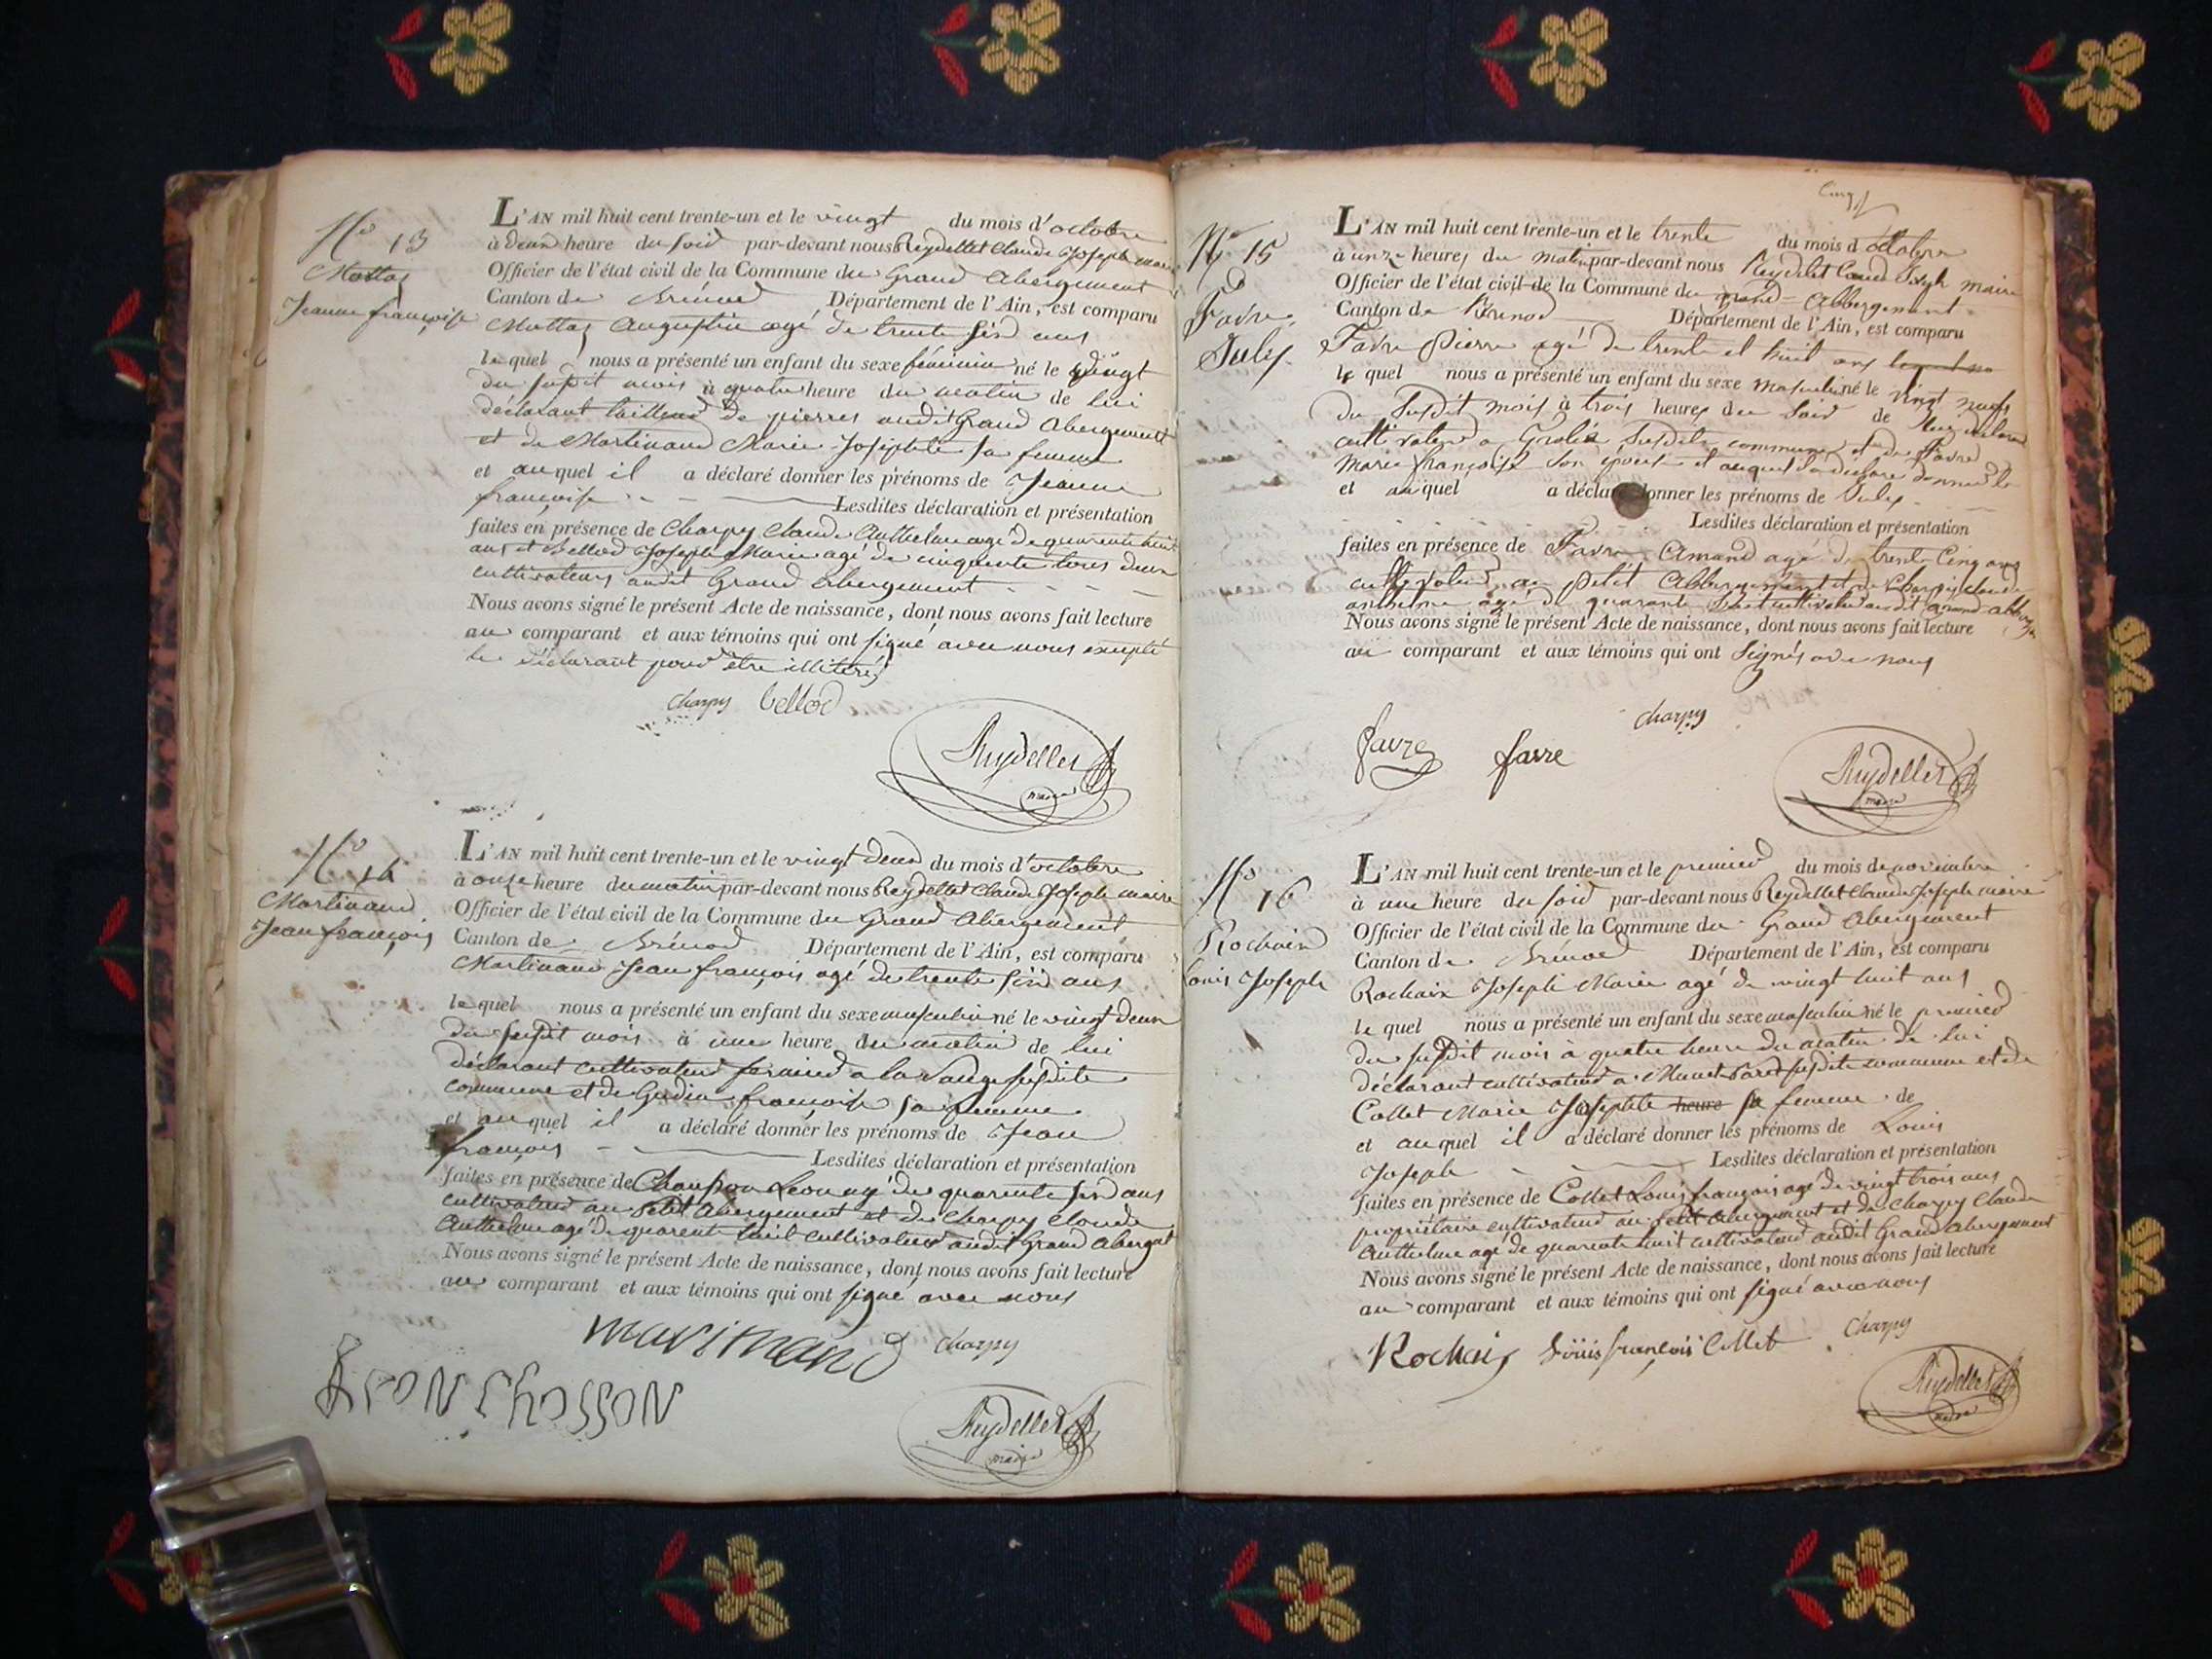 No 13
Mattaz
Jeanne françoise
L'AN mil huit cent trente-un et le vingt du mois d'octobre
à deux heure du soir par-devant nous Reydellet Claude Joseph maire
Officier de l'état civil de la Commune du Grand Abergement
Canton de Brénod Département de l'Ain, est comparu
Mattaz Augustin agé de trente six ans
le quel nous a présenté un enfant du sexe féminin né le vingt
du susdit mois à quatre heure du matin de lui
déclarant tailleur de pierres audit Grand Abergement
et de Martinand Marie Josephte sa femme
et auquel il a déclaré donner les prénoms de Jeanne
françoise Lesdites déclaration et présentation
faites en présence de Charpy Claude Anthelme agé de quarente huit
ans et Bellod Joseph Marie agé de cinquente tous deux
cultivateurs audit Grand Abergement
Nous avons signé le présent Acte de naissance, dont nous avons fait lecture
au comparant et aux témoins qui ont signé avec nous excepté
le déclarant pour être illitéré
charpy bellod
Reydellet
maire
No 14
Martinand
Jean françois
L'AN mil huit cent trente-un et le vingt deux du mois d'octobre
à onze heure du matin par-devant nous Reydellet Claude Joseph maire
Officier de l'état civil de la Commune du Grand Abergement
Canton de Brénod Département de l'Ain, est comparu
Martinand Jean françois agé de trente six ans
le quel nous a présenté un enfant du sexe masculin né le vingt deux
du susdit mois à une heure du matin de lui
déclarant cultivateur fermier a la susdite
commune et de Gudin françoise sa femme
et auquel il a déclaré donner les prénoms de Jean
françois Lesdites déclaration et présentation
faites en présence de Chausson Leon agé de quarente six ans
cultivateur au Petit Abergement et de Charpy Claude
Anthelme agé de quarente huit cultivateur audit Grand Abergnt
Nous avons signé le présent Acte de naissance, dont nous avons fait lecture
au comparant et aux témoins qui ont signé avec nous
martinand charpy
Leon Chosson
Reydellet
maire
Cinq
No 15
Favre
Jules
L'AN mil huit cent trente-un et le trente du mois d'octobre
à onze heures du matin par-devant nous Reydelet Claud Joseph maire
Officier de l'état civil de la Commune du grand-Abbergement
Canton de Brenod Département de l'Ain, est comparu
Favre Pierre agé de trente et huit ans
le quel nous a présenté un enfant du sexe masculin né le vingt neuf
du susdit mois à trois heures du soir de lui
cultivateur a susdite commune et de Favre
marie françoise son épouse et auquel
et auquel a déclaré donner les prénoms de Jules
Lesdites déclaration et présentation
faites en présence de Favre Amand agé de trente cinq ans
cultivateur au petit Abbergement et de Charpy Claude
antelme agé de quarante huit cultivateur audit grand abberg
Nous avons signé le présent Acte de naissance, dont nous avons fait lecture
au comparant et aux témoins qui ont signés avec nous
charpy
favre favre
Reydellet
maire
No 16
Rochaix
Louis Joseph
L'AN mil huit cent trente-un et le premier du mois de novembre
à une heure du soir par-devant nous Reydellet Claude Joseph maire
Officier de l'état civil de la Commune du Grand Abergement
Canton de Brénod Département de l'Ain, est comparu
Rochaix Joseph Marie agé de vingt huit ans
le quel nous a présenté un enfant du sexe masculin né le premier
du susdit mois à quatre heure du matin de lui
déclarant cultivateur a susdite commune et de
Collet Marie Josephte heure sa femme de
et auquel il a déclaré donner les prénoms de Louis
Joseph Lesdites déclaration et présentation
faites en présence de Collet Louis françois agé de vingt trois ans
propriétaire cultivateur au Petit Abergement et de Charpy Claude
Anthelme agé de quarente huit cultivateur audit Grand Abergement
Nous avons signé le présent Acte de naissance, dont nous avons fait lecture
au comparant et aux témoins qui ont signé avec nous
Rochaix Louis françois Collet charpy
Reydellet
maire